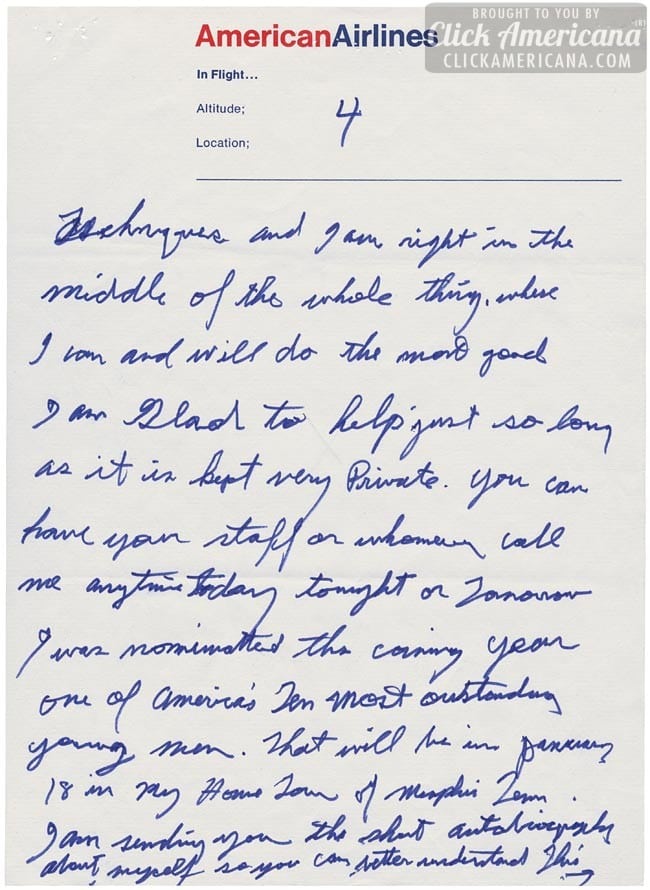 BROUGHT TO YOU BY
Click Americana
CLICKAMERICANA.COM
AmericanAirlines
In Flight...
Altitude;
4
Location;
Techniques and I am right in the
middle of the whole thing, where
I can and will do the most good
I am Glad to help just so long
as it is kept very Private. You can
have your staff or whomever call
me anytime today tonight or Tomorrow
I was nominatted this coming year
one of America's Ten most outstanding
young men. That will be in January
18 in my Home Town of Memphis Tenn.
I am sending you the short autobiography
about myself so you can better understand This
→